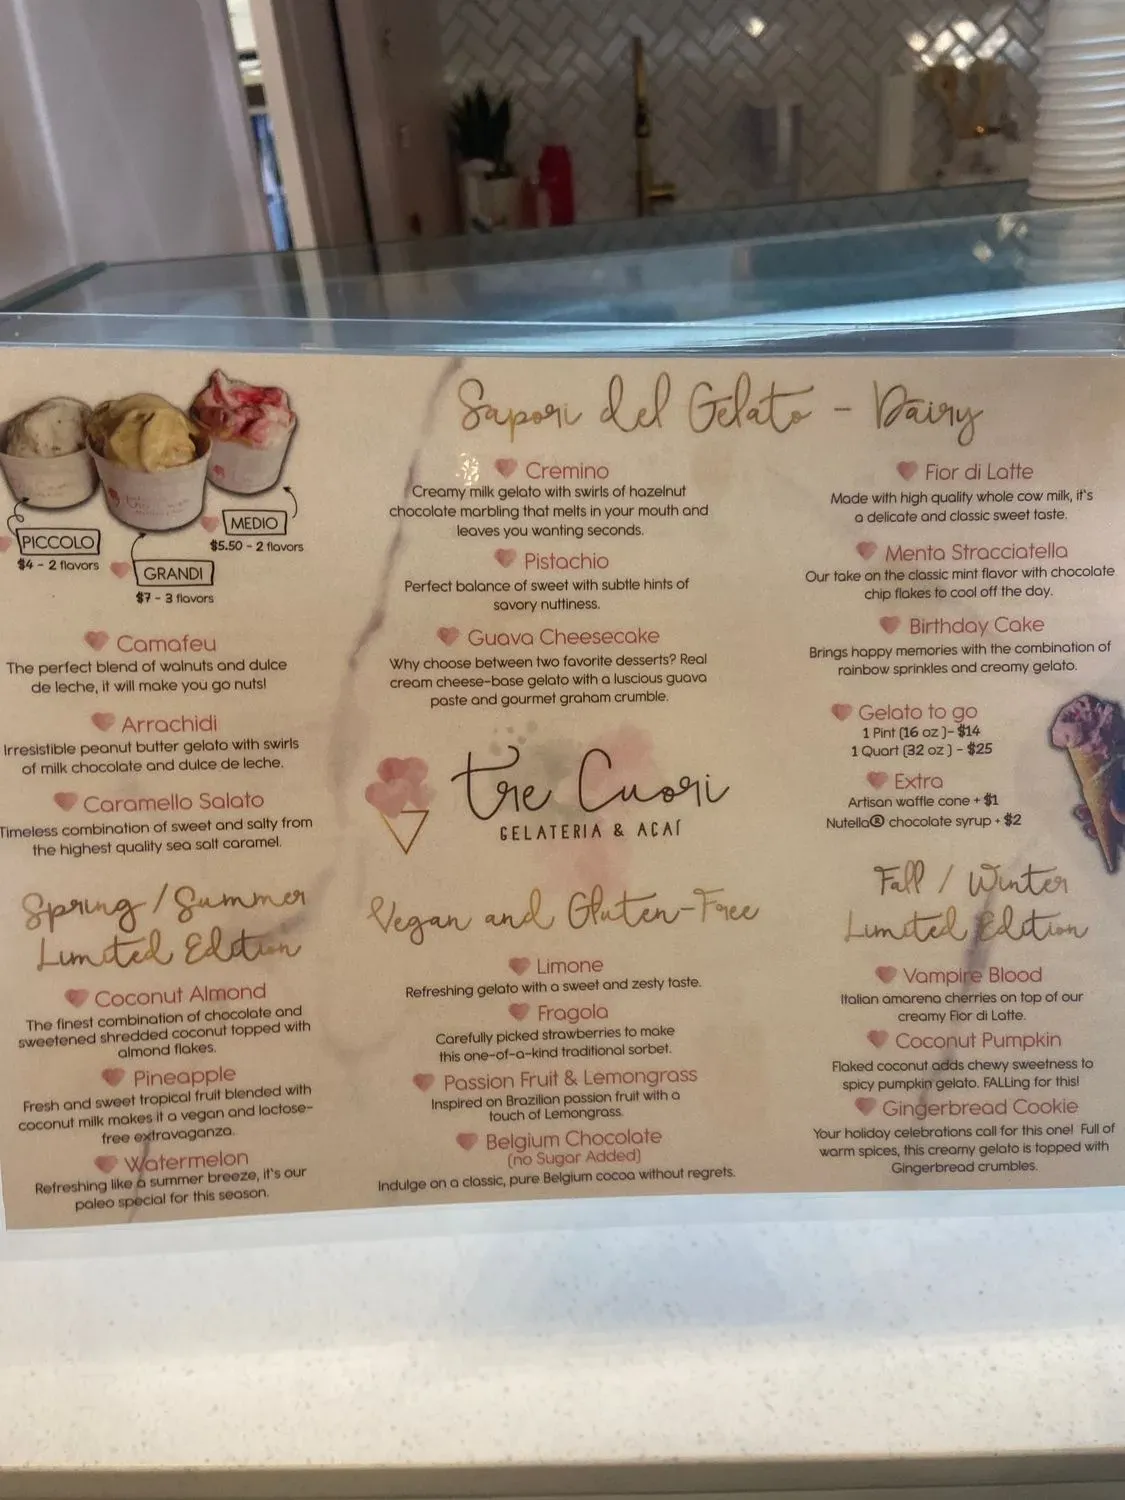 Sapori del Gelato - Dairy
PICCOLO
$4 - 2 flavors
MEDIO
$5.50 - 2 flavors
GRANDI
$7 - 3 flavors
Camafeu
The perfect blend of walnuts and dulce
de leche, it will make you go nuts!
Arrachidi
Irresistible peanut butter gelato with swirls
of milk chocolate and dulce de leche.
Caramello Salato
Timeless combination of sweet and salty from
the highest quality sea salt caramel.
Cremino
Creamy milk gelato with swirls of hazelnut
chocolate marbling that melts in your mouth and
leaves you wanting seconds.
Pistachio
Perfect balance of sweet with subtle hints of
savory nuttiness.
Guava Cheesecake
Why choose between two favorite desserts? Real
cream cheese-base gelato with a luscious guava
paste and gourmet graham crumble.
Fior di Latte
Made with high quality whole cow milk, it's
a delicate and classic sweet taste.
Menta Stracciatella
Our take on the classic mint flavor with chocolate
chip flakes to cool off the day.
Birthday Cake
Brings happy memories with the combination of
rainbow sprinkles and creamy gelato.
Gelato to go
1 Pint (16 oz )- $14
1 Quart (32 oz ) - $25
Extra
Artisan waffle cone + $1
Nutella® chocolate syrup + $2
tre Cuori
GELATERIA & AÇAÍ
Spring / Summer
Limited Edition
Coconut Almond
The finest combination of chocolate and
sweetened shredded coconut topped with
almond flakes.
Pineapple
Fresh and sweet tropical fruit blended with
coconut milk makes it a vegan and lactose-
free extravaganza.
Watermelon
Refreshing like a summer breeze, it's our
paleo special for this season.
Vegan and Gluten-Free
Limone
Refreshing gelato with a sweet and zesty taste.
Fragola
Carefully picked strawberries to make
this one-of-a-kind traditional sorbet.
Passion Fruit & Lemongrass
Inspired on Brazilian passion fruit with a
touch of Lemongrass.
Belgium Chocolate
(no Sugar Added)
Indulge on a classic, pure Belgium cocoa without regrets.
Fall / Winter
Limited Edition
Vampire Blood
Italian amarena cherries on top of our
creamy Fior di Latte.
Coconut Pumpkin
Flaked coconut adds chewy sweetness to
spicy pumpkin gelato. FALLing for this!
Gingerbread Cookie
Your holiday celebrations call for this one! Full of
warm spices, this creamy gelato is topped with
Gingerbread crumbles.